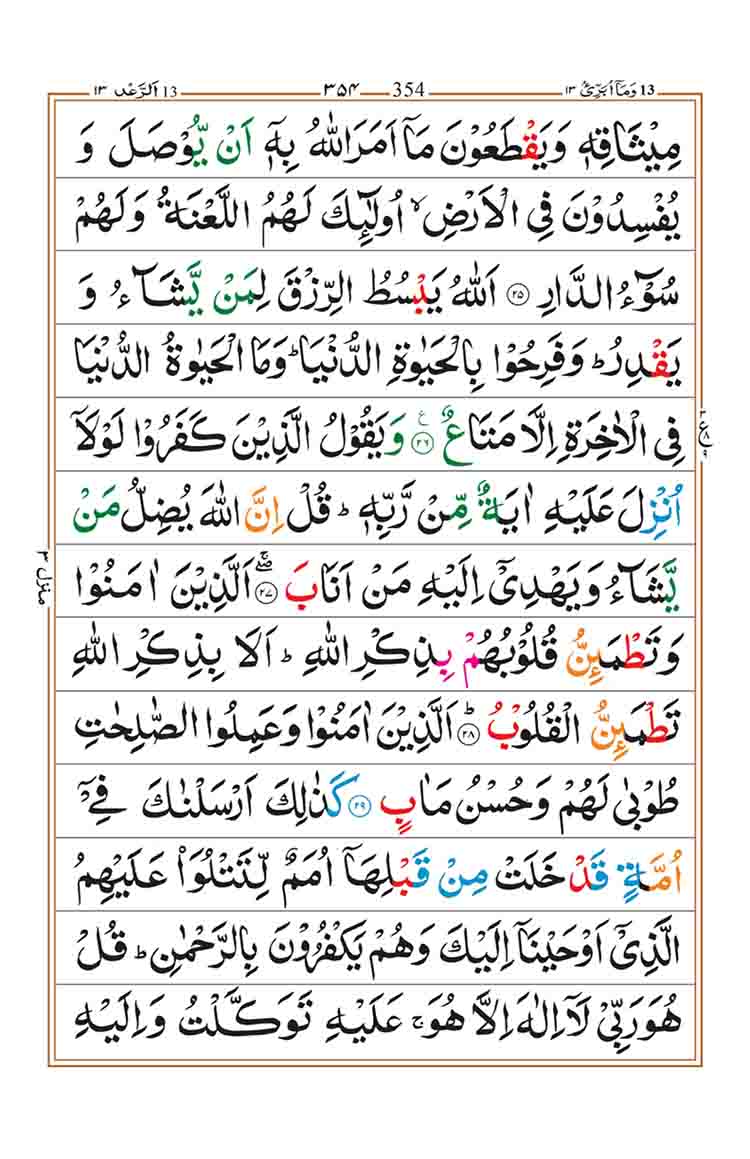 13 وَمَآ اُبَرِّئُ ١٣ 354 ٣٥٤ 13 اَلرَّعْد ١٣
مِيْثَاقِهٖ وَيَقْطَعُوْنَ مَاۤ اَمَرَ اللّٰهُ بِهٖۤ اَنْ يُّوْصَلَ وَ
يُفْسِدُوْنَ فِى الْاَرْضِ ۙ اُولٰٓئِكَ لَهُمُ اللَّعْنَةُ وَلَهُمْ
سُوْٓءُ الدَّارِ ۝٢٥ اَللّٰهُ يَبْسُطُ الرِّزْقَ لِمَنْ يَّشَآءُ وَ
يَقْدِرُ ؕ وَفَرِحُوْا بِالْحَيٰوةِ الدُّنْيَا ؕ وَمَا الْحَيٰوةُ الدُّنْيَا
فِى الْاٰخِرَةِ اِلَّا مَتَاعٌ ۝٢٦ ع وَيَقُوْلُ الَّذِيْنَ كَفَرُوْا لَوْلَاۤ
اُنْزِلَ عَلَيْهِ اٰيَةٌ مِّنْ رَّبِّهٖ ؕ قُلْ اِنَّ اللّٰهَ يُضِلُّ مَنْ
يَّشَآءُ وَيَهْدِىْۤ اِلَيْهِ مَنْ اَنَابَ ۝٢٧ ۖۚ اَلَّذِيْنَ اٰمَنُوْا
منزل ٣
وَتَطْمَئِنُّ قُلُوْبُهُمْ بِذِكْرِ اللّٰهِ ؕ اَلَا بِذِكْرِ اللّٰهِ
تَطْمَئِنُّ الْقُلُوْبُ ۝٢٨ ؕ اَلَّذِيْنَ اٰمَنُوْا وَعَمِلُوا الصّٰلِحٰتِ
طُوْبٰى لَهُمْ وَحُسْنُ مَاٰبٍ ۝٢٩ كَذٰلِكَ اَرْسَلْنٰكَ فِىْۤ
اُمَّةٍ قَدْ خَلَتْ مِنْ قَبْلِهَاۤ اُمَمٌ لِّتَتْلُوَا۟ عَلَيْهِمُ
الَّذِىْۤ اَوْحَيْنَاۤ اِلَيْكَ وَهُمْ يَكْفُرُوْنَ بِالرَّحْمٰنِ ؕ قُلْ
هُوَ رَبِّىْ لَاۤ اِلٰهَ اِلَّا هُوَ ۚ عَلَيْهِ تَوَكَّلْتُ وَاِلَيْهِ